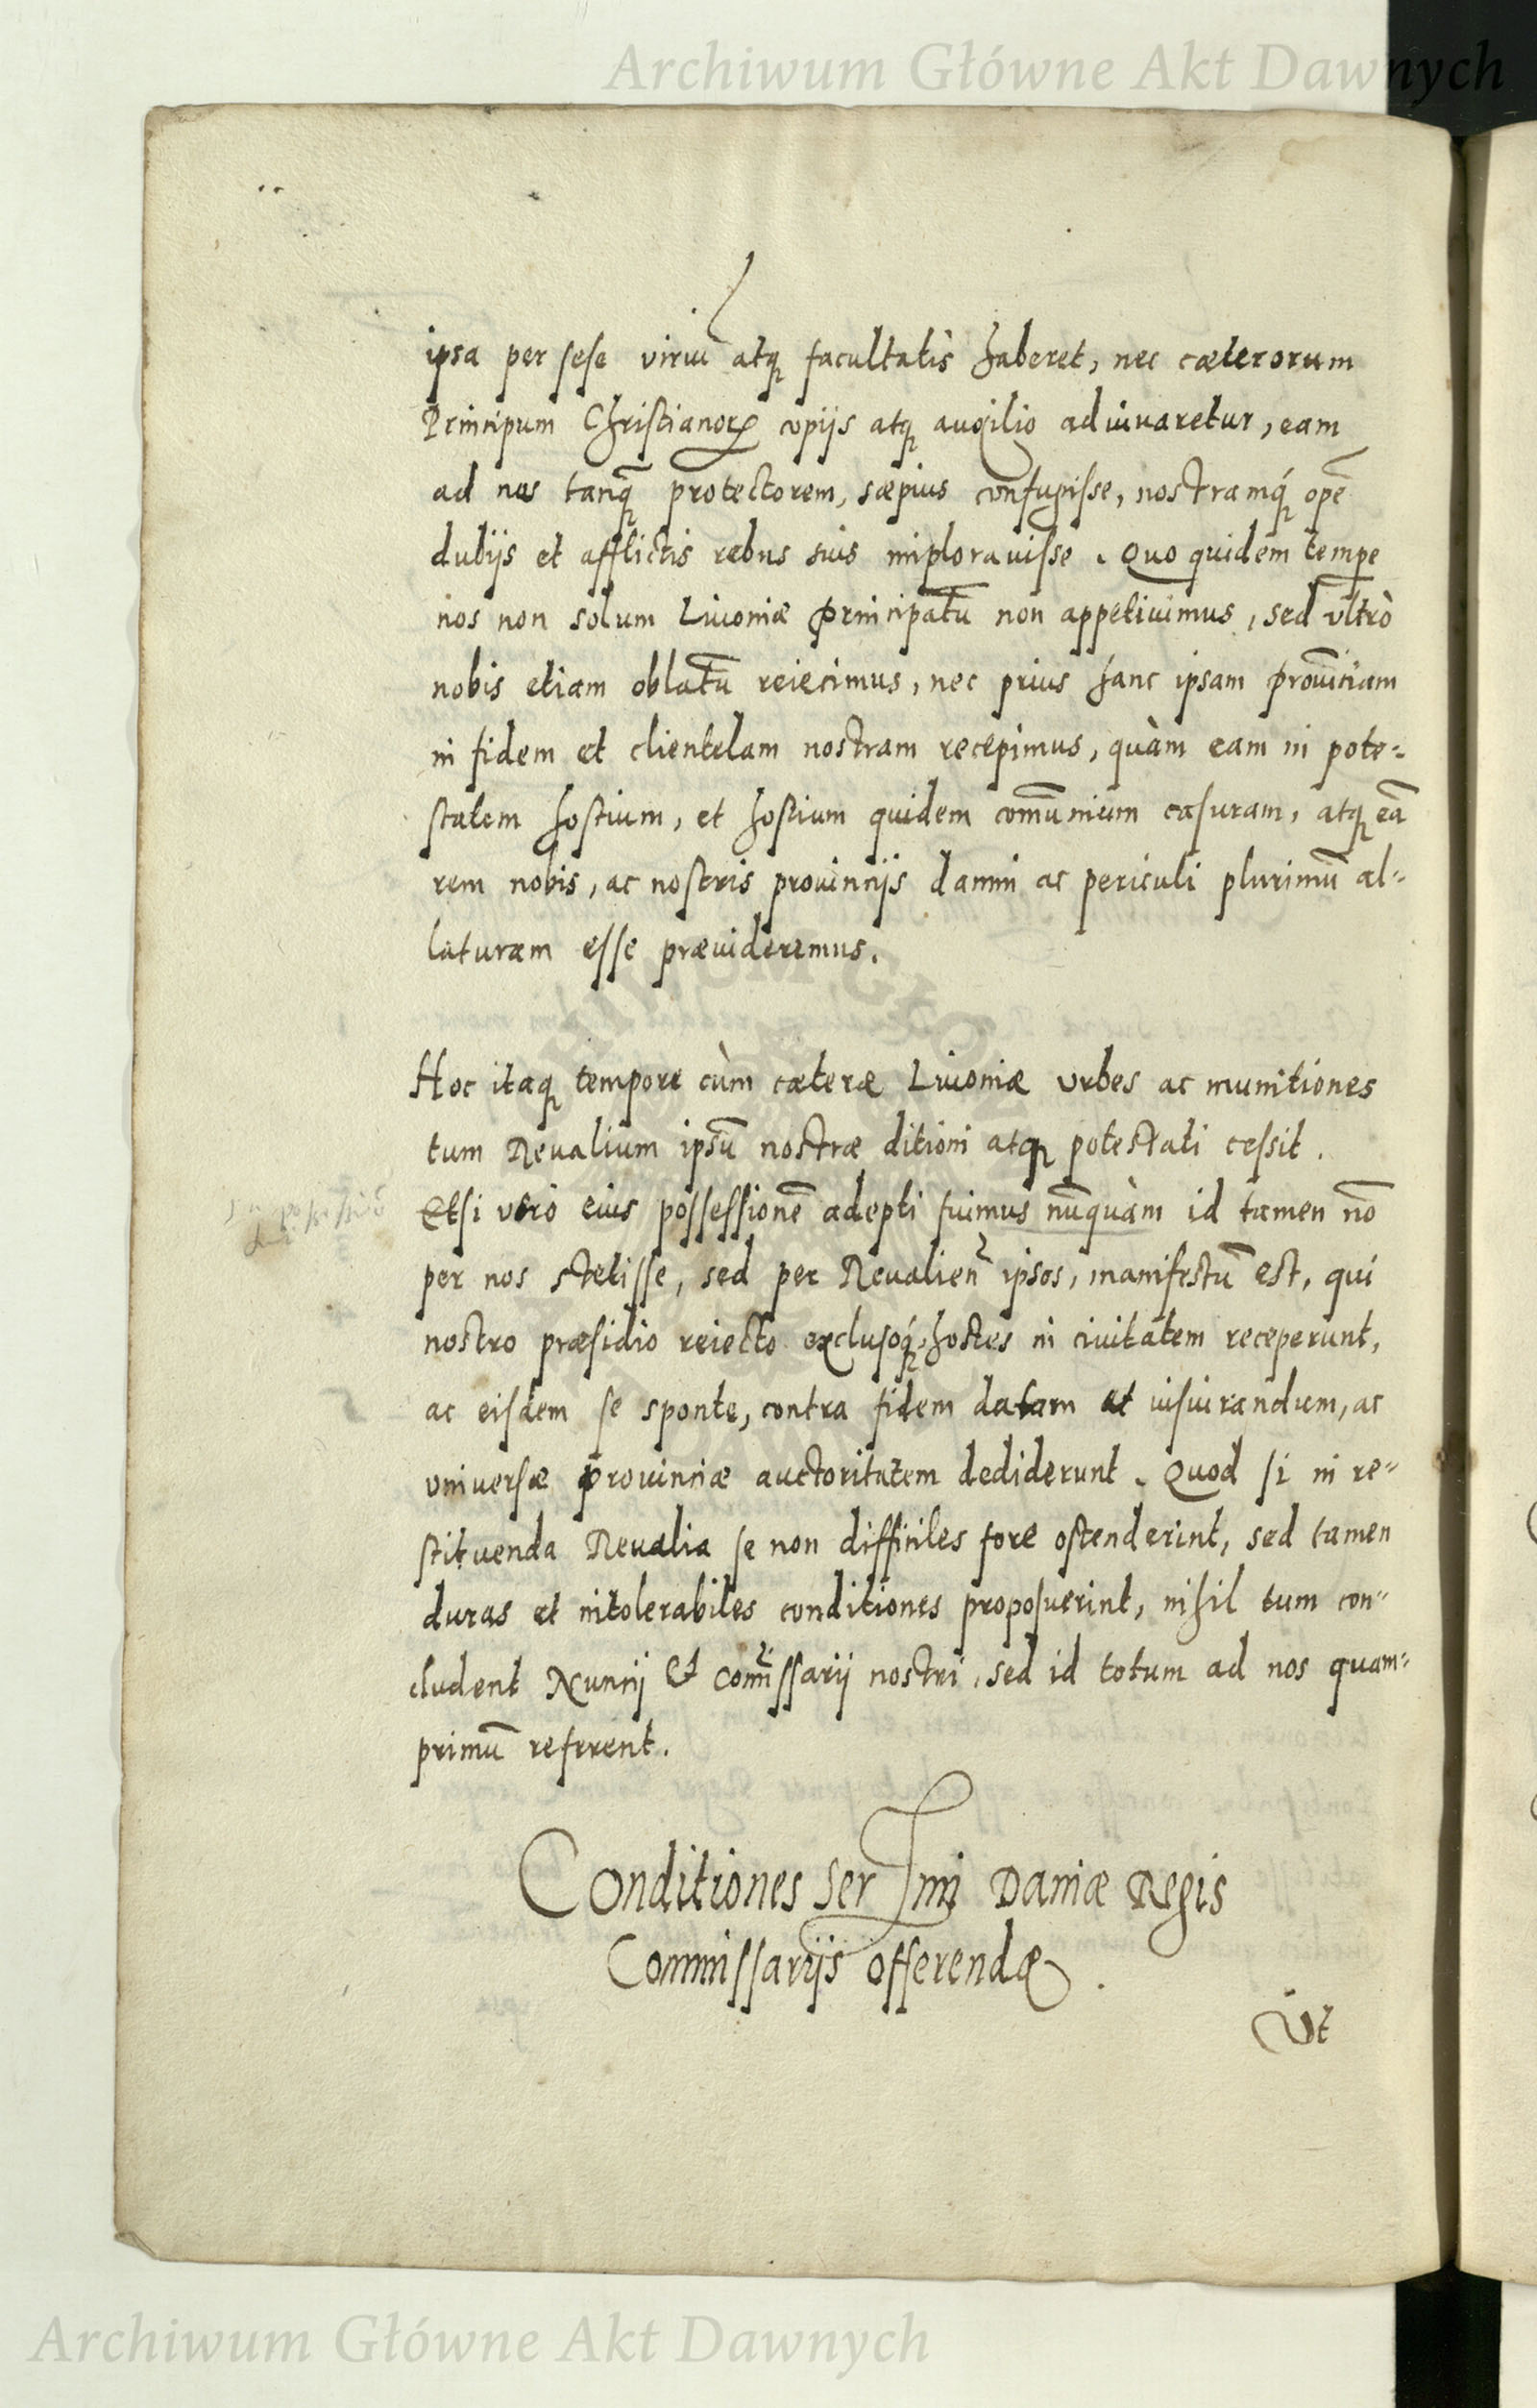 Archiwum Główne Akt Dawnych
ipsa per sese viriū atq; facultatis haberet, nec cæterorum
Principum Christianorꝝ copijs atq; auxilio adiuuaretur, eam
ad nos tanq̄; protectorem, sæpius confugisse, nostramq́; opē
dubijs et afflictis rebus suis imploravisse. Quo quidem tempe
nos non solum Liuoniæ Principatū non appetivimus, sed vltrò
nobis etiam oblatū reiecimus, nec prius hanc ipsam prouīciam
in fidem et clientelam nostram recepimus, quàm eam in pote-
statem hostium, et hostium quidem comūnium casuram, atq; eā
rem nobis, ac nostris prouincijs damni ac periculi plurimū al-
laturam esse præuideremus.
Hoc itaq; tempore cùm cæteræ Liuoniæ vrbes ac munitiones
tum Reualium ipsū nostræ ditioni atq; potestati cessit.
Etsi vero eius possessionē adepti fuimus nūquàm id tamen nō
per nos stetisse, sed per Reualien̄ ipsos, manifestū est, qui
nostro præsidio reiecto exclusoq́; hostes in civitatem receperunt,
ac eisdem se sponte, contra fidem datam et iusiurandum, ac
vniversæ prouinciæ auctoritatem dediderunt. Quod si in re-
stituenda Reualia se non difficiles fore ostenderint, sed tamen
duras et intolerabiles conditiones proposuerint, nihil tum con-
cludent Nuncij & Comīssarij nostri, sed id totum ad nos quam-
primū referent.
Conditiones Ser Imi Daniæ Regis
Commissarijs offerendæ.
Vt
Archiwum Główne Akt Dawnych